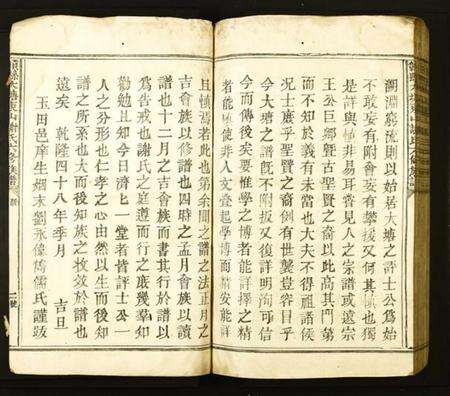 淵窮流則以始居大塘之評士公為始
不敢妄有附會妄有攀援又何其慎也獨
是詳與慎非易耳嘗見人之宗譜或遠宗
王公巨卿暨古聖賢之裔以此高其門第
而不知於義有未當也大夫不得祖諸侯
況士庶乎聖賢之裔例有世襲豈容目乎
今大塘之譜既不附扳又復詳明洵可信
今而傳後矣要惟學之博者能詳擇之精
者能慎使非人文疊起學博而精安能詳
且慎若此也第余聞之譜之法正月之
吉會族以修譜也四時之孟月會族以讀
譜也十二月之吉會族而書其行於譜以
為告戒也謝氏之庭遵而行之庶幾羣知
勸勉且知今日濟匕一堂者皆評士公一
人之分形也仁孝之心由然以生而後知
譜之所系也大而後知族之收效於譜也
遠矣 乾隆四十八年季月 吉旦
玉田邑庠生烟末劉永儒氏謹跋
大塘東山謝氏六修族譜